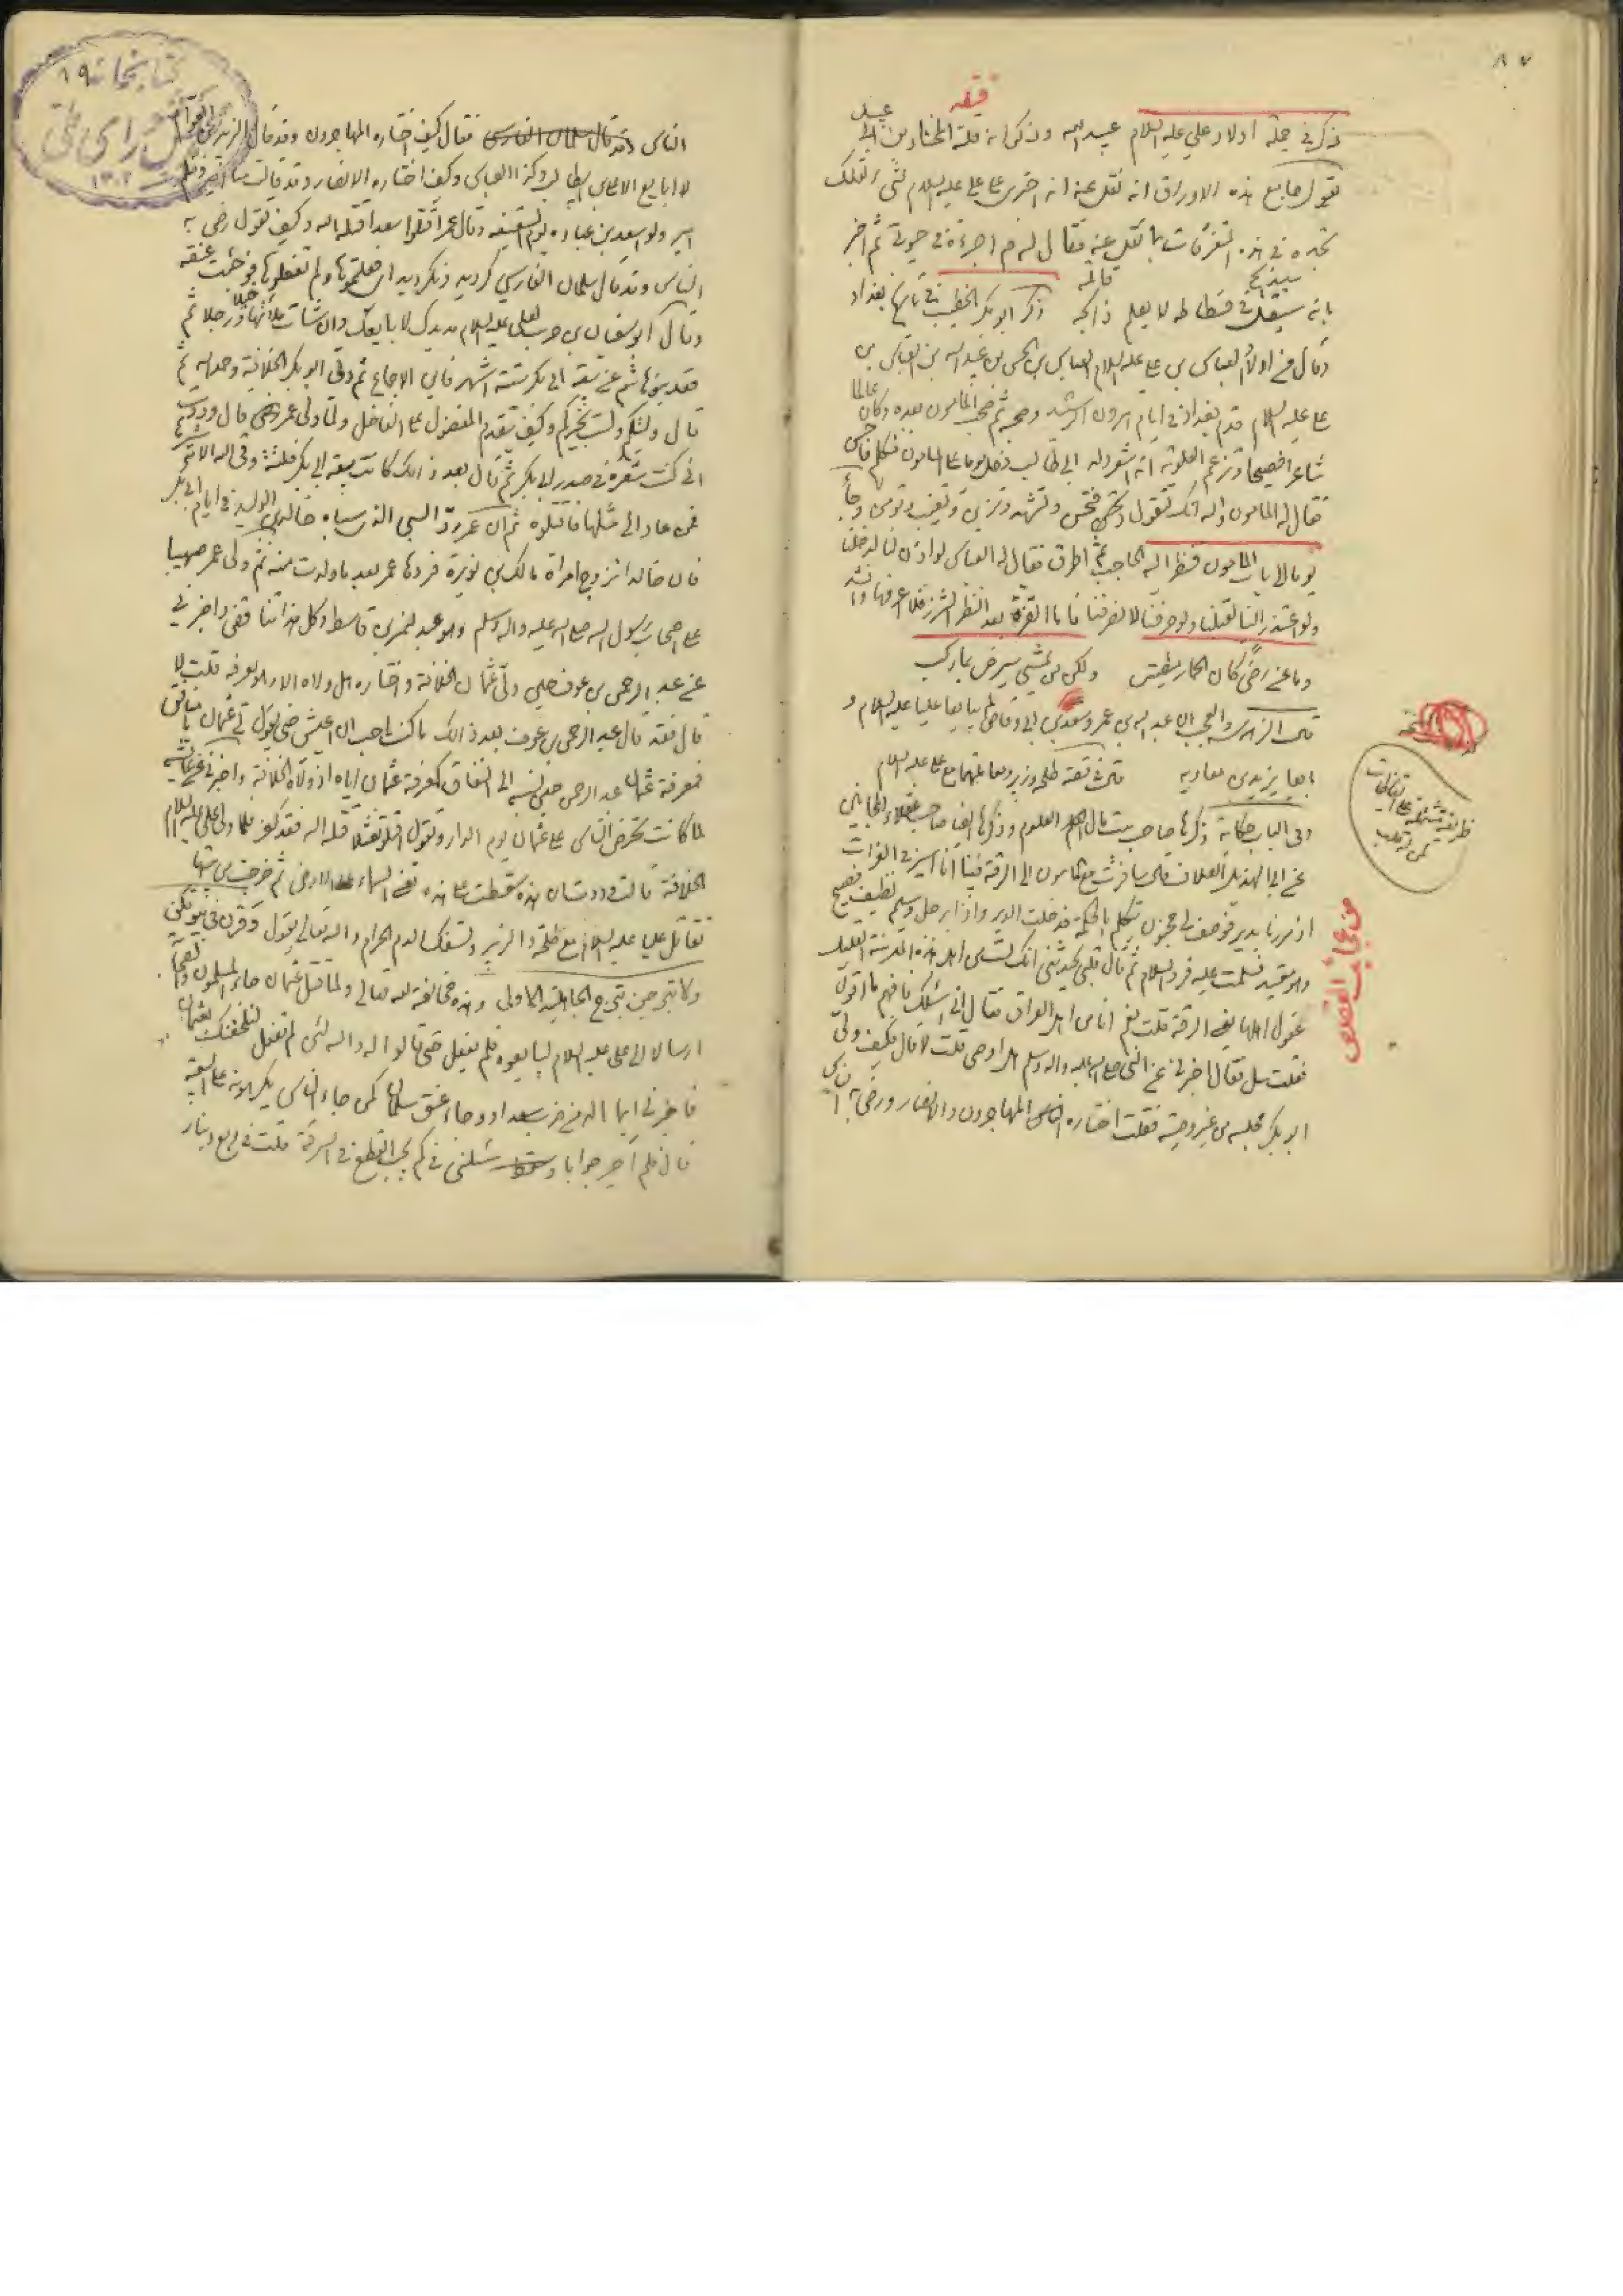 ٨٧
فیه
ذكر في جملة اولاد علي عليه السلام عبيد الله وذكر انه قتله المختار بن ابي عبيد
يقول جامع هذه الاوراق انه نقل عنه انه اجترى على علي عليه السلام بشي
في هذه المتفرقات ما نقل عنه فقال له في حيوتي ثم اخبر
بانه سيقتل في فسطاطه لا يعلم ذابحه ذكر ابو بكر الخطيب في تاريخ بغداد
وقال في اولاد العباس بن علي عليه السلام العباس بن الحسن بن عبيد الله بن العباس بن
علي عليه السلام قدم بغداد في ايام هرون الرشيد وصحبه ثم صحب المامون بعده وكان عالما
شاعرا فصيحا وتزعم العلوية انه اشعر ولد ابي طالب فدخل يوما على المامون فتكلم فاحسن
فقال له المامون والله انك لتقول فتحسن وتشهد فتزين وتغيب فتؤمن وجاء
يوما الى باب المامون فنظر اليه الحاجب ثم اطرق فقال له العباس لو اذن لنا لدخلنا
ولو اعتذر الينا لقبلنا ولو صرفنا لانصرفنا فاما النظر الشزر فلا اعرفها وانشد
وما عن رضى كان الحمار مطيتي ولكن من يمشي سيرضى بما ركب
والعجب ان عبد الله بن عمر وسعد بن ابي وقاص لم يبايعا عليا عليه السلام و
بايعا يزيد بن معاويه في قصة طلحه وزبير ومقاتلتهما مع علي عليه السلام
وفي الباب حكاية ذكرها صاحب بيت مال العلوم وذكرها ايضا صاحب عقلاء المجانين
عن ابي الهذيل العلاف قال سافرت مع المامون الى الرقة فبينا انا اسير في الفرات
اذ مررنا بدير فوصف لي مجنون يتكلم بالحكمة فدخلت الدير واذا برجل وسيم نظيف فصيح
وهو مقيد فسلمت عليه فرد السلام ثم قال قلبي يحدثني انك لست من اهل هذه المدينة القليل
عقول اهلها يعني الرقة قلت نعم انا من اهل العراق فقال اني اسئلك فافهم ما اقول
فقلت سل فقال اخبرني عن النبي صلى الله عليه واله وسلم هل اوصى قلت لا قال فكيف ولي
ابو بكر مجلسه من غير وصية فقلت اختاره المهاجرون والانصار ورضي به الناس
من عجائب القصص
الناس فقال كيف اختاره المهاجرون وقد قال الزبير بن العوام
لا ابايع الا علي بن ابي طالب وكذا العباس وكيف اختاره الانصار وقد قالت منا امير ومنكم
امير ولو سعد بن عباده يوم السقيفه وقال عمر اقتلوا سعدا قتله الله وكيف تقول رضي به
الناس وقد قال سلمان الفارسي كرديد ونكرديد اي فعلتموها ولم تفعلوها فوجئت عنقه
وقال ابو سفيان بن حرب لعلي عليه السلام مد يدك لابايعك وان شئت ملأتها خيلا ورجلا ثم
قعد بنو هاشم عن بيعة ابي بكر ستة اشهر فاين الاجماع ثم ولي ابو بكر الخلافة وحمد الله ثم
قال وليتكم ولست بخيركم وكيف يتقدم المفضول على الفاضل ولما ولي عمر قال وددت
اني كنت شعرة في صدر ابي بكر ثم قال بعد ذالك كانت بيعة ابي بكر فلتة وقى الله شرها
فمن عاد الى مثلها فاقتلوه ثم ان عمر رد السبي الذي سباه خالد بن الوليد في ايام ابي بكر
فان خالدا تزوج امراة مالك بن نويرة فردها عمر بعد ما ولدت منه ثم ولى عمر صهيبا
على اصحاب رسول الله صلى الله عليه واله وسلم وهو عبد لنمر بن قاسط وكل هذا تناقض واخبرني
عن عبد الرحمن بن عوف حين ولى عثمان الخلافة واختاره هل ولاه الا وهو يعرفه قلت لا
قال فقد قال عبد الرحمن بن عوف بعد ذالك ما كنت احب ان اعيش حتى يقول لي عثمان يا منافق
فمعرفة عثمان عبد الرحمن حين نسبه الى النفاق كمعرفة عثمان اياه اذ ولاه الخلافة واخبرني عن عايشه
لما كانت تحرض الناس على عثمان يوم الدار وتقول اقتلوا نعثلا قتله الله فقد كفر فلما ولي علي عليه السلام
الخلافة قالت وددت ان هذه سقطت على هذه تعني السماء على الارض ثم خرجت من بيتها
تقاتل عليا عليه السلام مع طلحة والزبير وتسفك الدم الحرام والله تعالى يقول وقرن في بيوتكن
ولا تبرجن تبرج الجاهلية الاولى وهذه مخالفة لله تعالى ولما قتل عثمان جاء المسلمون
ارسالا الى علي عليه السلام ليبايعوه فلم يفعل حتى قالوا له والله لئن لم تفعل لنلحقنك بعثمان
فاخبرني ايما اكد من ضرب سعدا ووجاء عنق سلمان كمن جاء الناس يكرهونه على البيعة
قال فلم احر جوابا سئلني في كم يجب القطع في السرقة قلت في ربع دينار
كتابخانه ١٩
مجلس شورای ملی
١٣٠٢